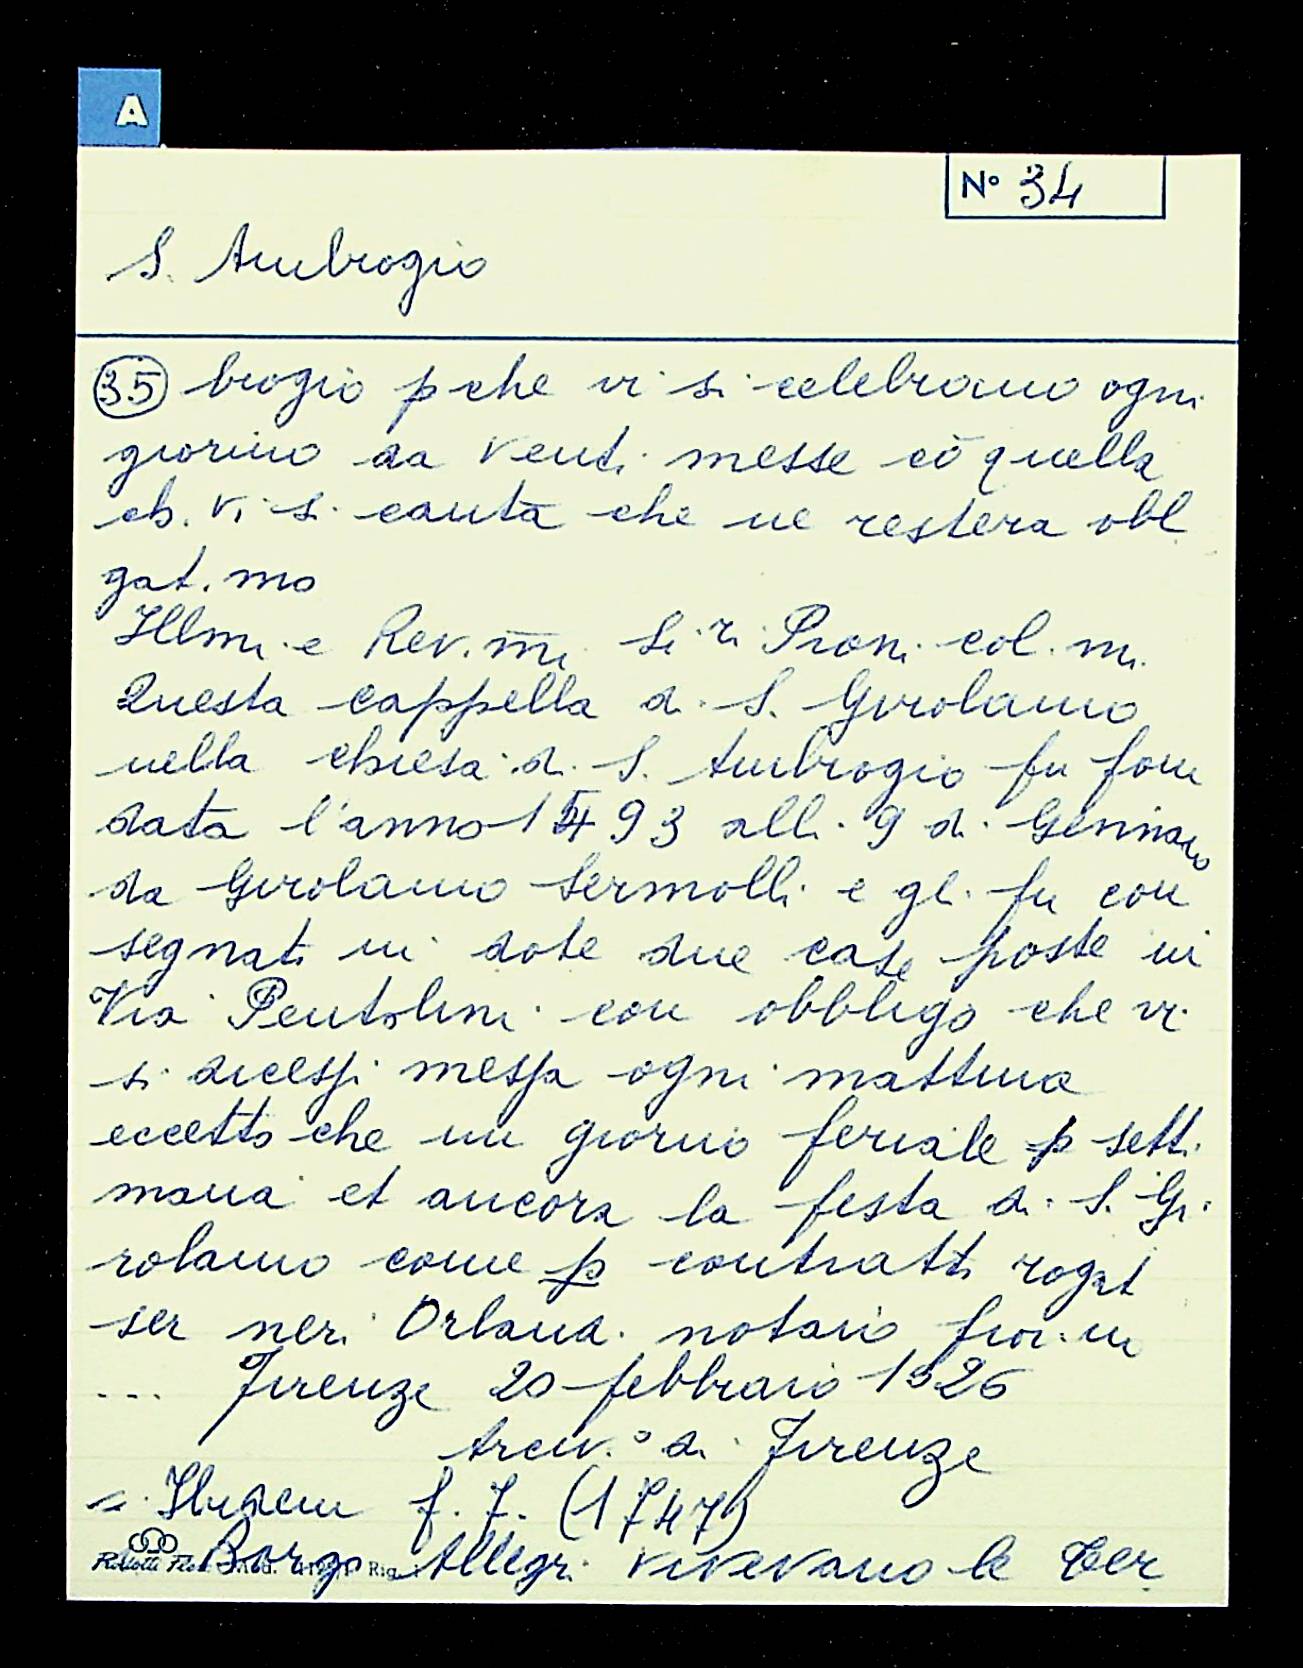 A
N° 34
S. Ambrogio
35 brogio pche vi si celebrano ogni
giorno da venti messe cō quella
ch. vi si canta che ne restera obl
gat.mo
Illmi e Rev.mi Si.ri Proni col.mi
Questa cappella di S. Girolamo
nella chiesa di S. Ambrogio fu fon
data l'anno 1493 alli 9 di Gennaro
da Girolamo Sermolli e gli fu con
segnati in dote due case poste in
Via Pentolini con obbligo che vi
si dicessi messa ogni mattina
eccetto che un giorno feriale p setti
mana et ancora la festa di S. Gi
rolamo come p contratti rogati
ser neri Orlandi notaio fior.no
... Firenze 20 febbraio 1926
Arciv.° di Firenze
= Ibidem f. 7. (1747)
Borgo Allegri vivevano le Cer